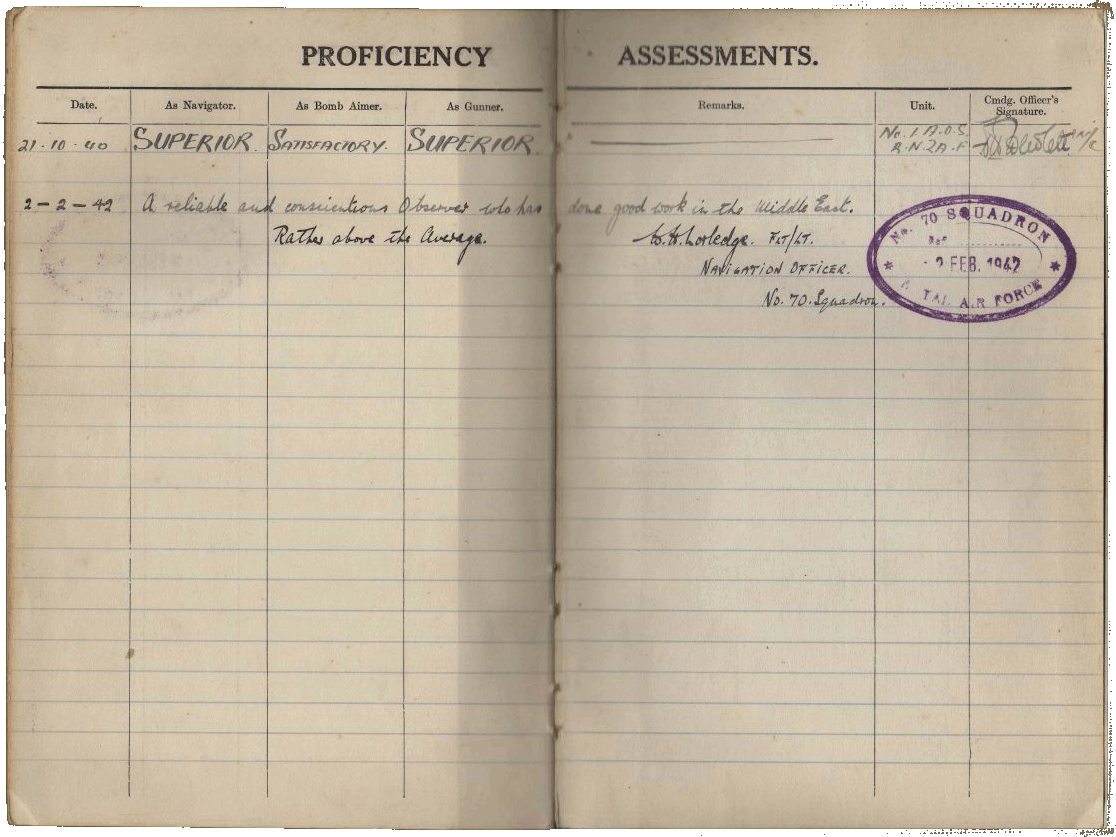 PROFICIENCY ASSESSMENTS.
Date. As Navigator. As Bomb Aimer. As Gunner. Remarks. Unit. Cmdg. Officer's Signature.
21-10-40 SUPERIOR. SATISFACTORY. SUPERIOR. No. 1. A.O.S. R.N.Z.A.F.
2-2-42 A reliable and conscientious Observer who has done good work in the Middle East.
Rather above the Average.
FLT/LT.
NAVIGATION OFFICER.
No. 70. Squadron.
No. 70 SQUADRON
REF
2 FEB. 1942
AIR FORCE